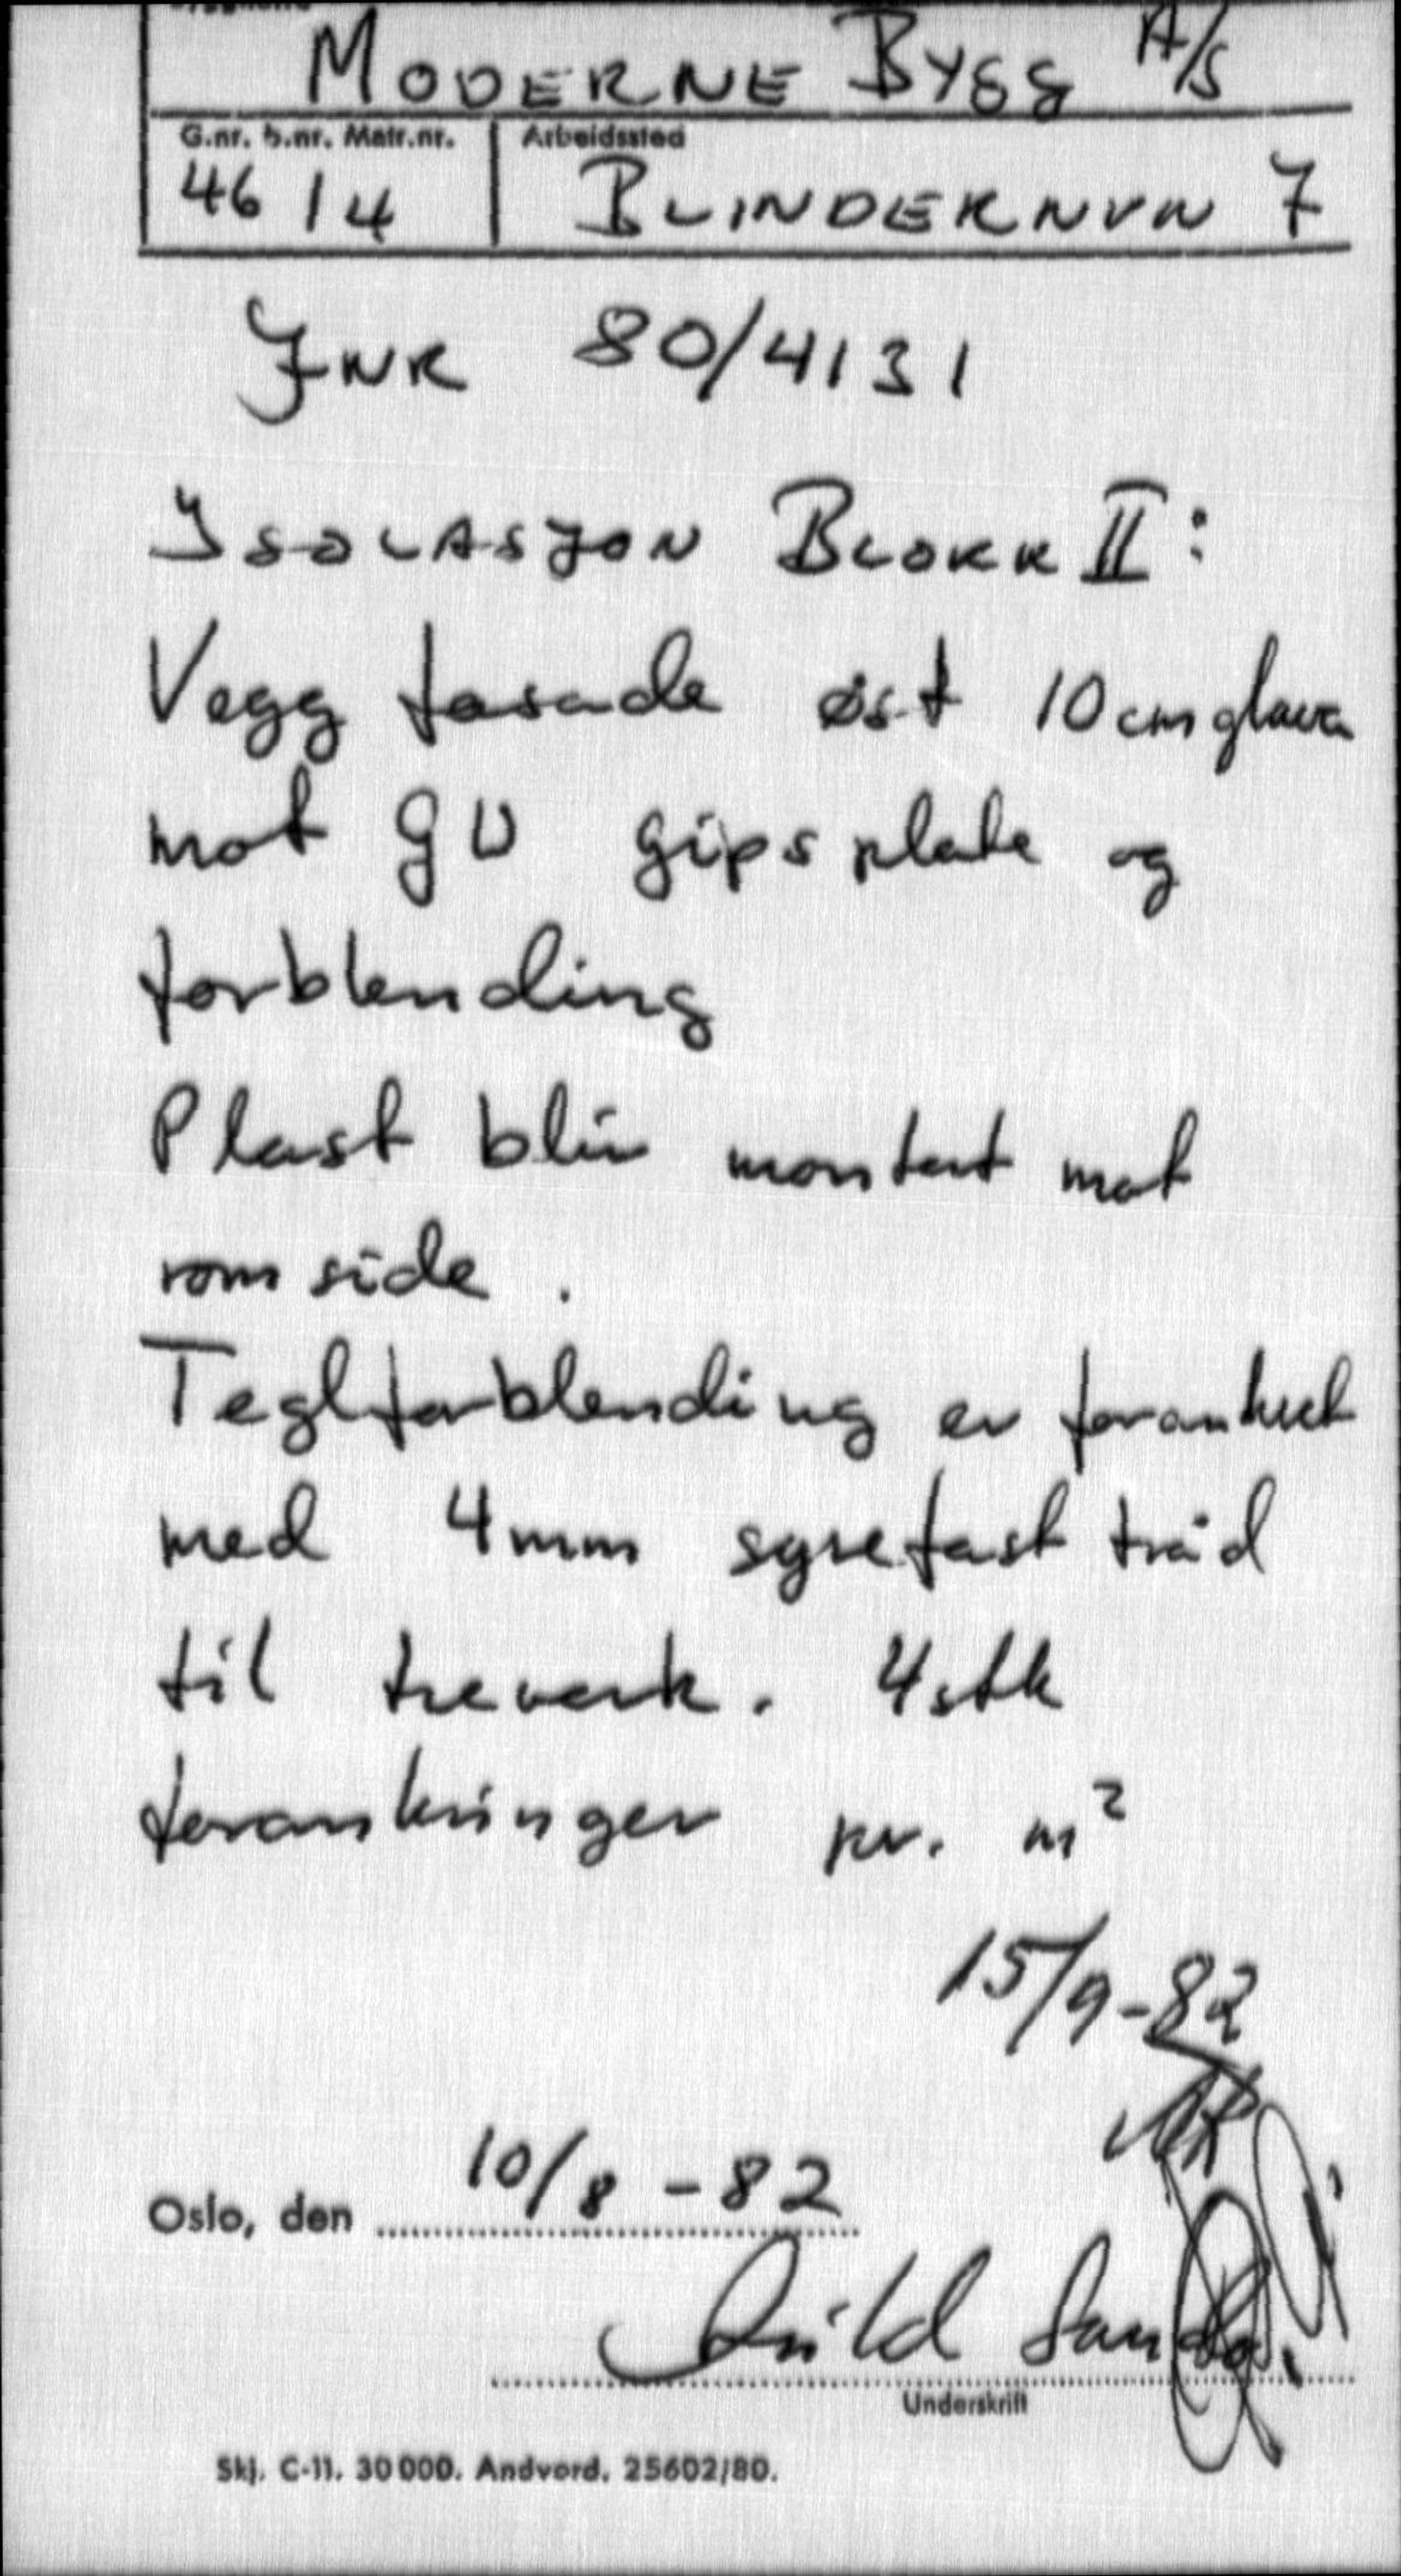 MODERNE BYGG A/S
G.nr. b.nr. Matr.nr. Arbeidssted
46 14 BLINDERNVN 7
JNR 80/4131
ISOLASJON BLOKK II:
Vegg fasade øst 10 cm glava
mot GU gipsplate og
forblending
Plast blir montert mot
romside.
Teglforblending er forankret
med 4mm syrefast tråd
til treverk. 4stk
forankringer pr. m²
15/9-82
Oslo, den 10/8-82
Underskrift
Skj. C-11. 30000. Andvord. 25602/80.